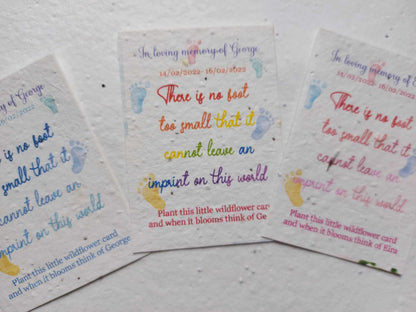 ng memory of George
/02/2022
is no foot
small that it
cannot leave an
imprint on this world
Plant this little wildflower card
and when it blooms think of George
In loving memory of George
14/02/2022- 16/02/2022
There is no foot
too small that it
cannot leave an
imprint on this world
Plant this little wildflower card
and when it blooms think of Ge
In loving memory of
There is no foot
too small that it
cannot leave an
imprint on this world
Plant this little wildflower card
and when it blooms think of Elra